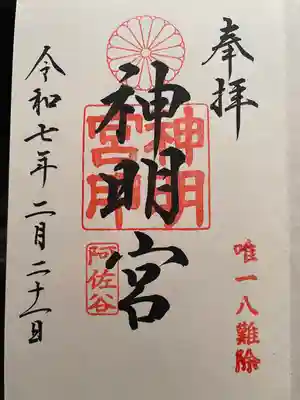 奉拝
唯一八難除
神明宮
神明宮印
阿佐谷
令和七年二月二十一日